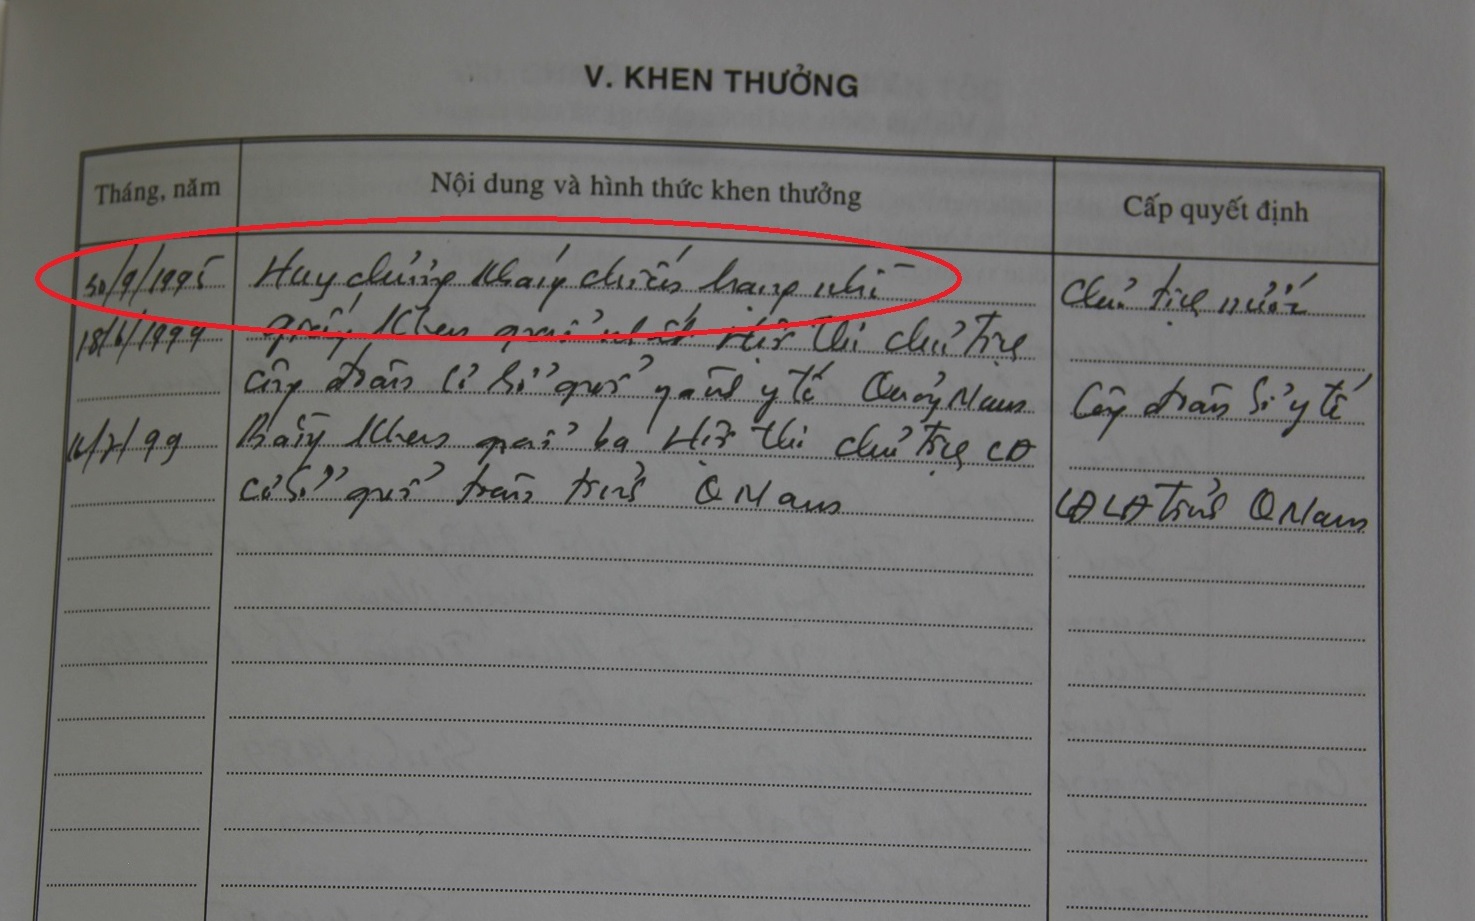 V. KHEN THƯỞNG
Tháng, năm Nội dung và hình thức khen thưởng Cấp quyết định
30/9/1995 Huy chương kháng chiến hạng nhì Chủ tịch nước
18/6/1999 giấy khen giải nhất Hội thi chủ tịch
công đoàn cơ sở giỏi ngành y tế Quảng Nam Công đoàn Sở y tế
/7/99 Bằng khen giải ba Hội thi chủ tịch CĐ
cơ sở giỏi toàn tỉnh Q Nam LĐLĐ tỉnh Q Nam